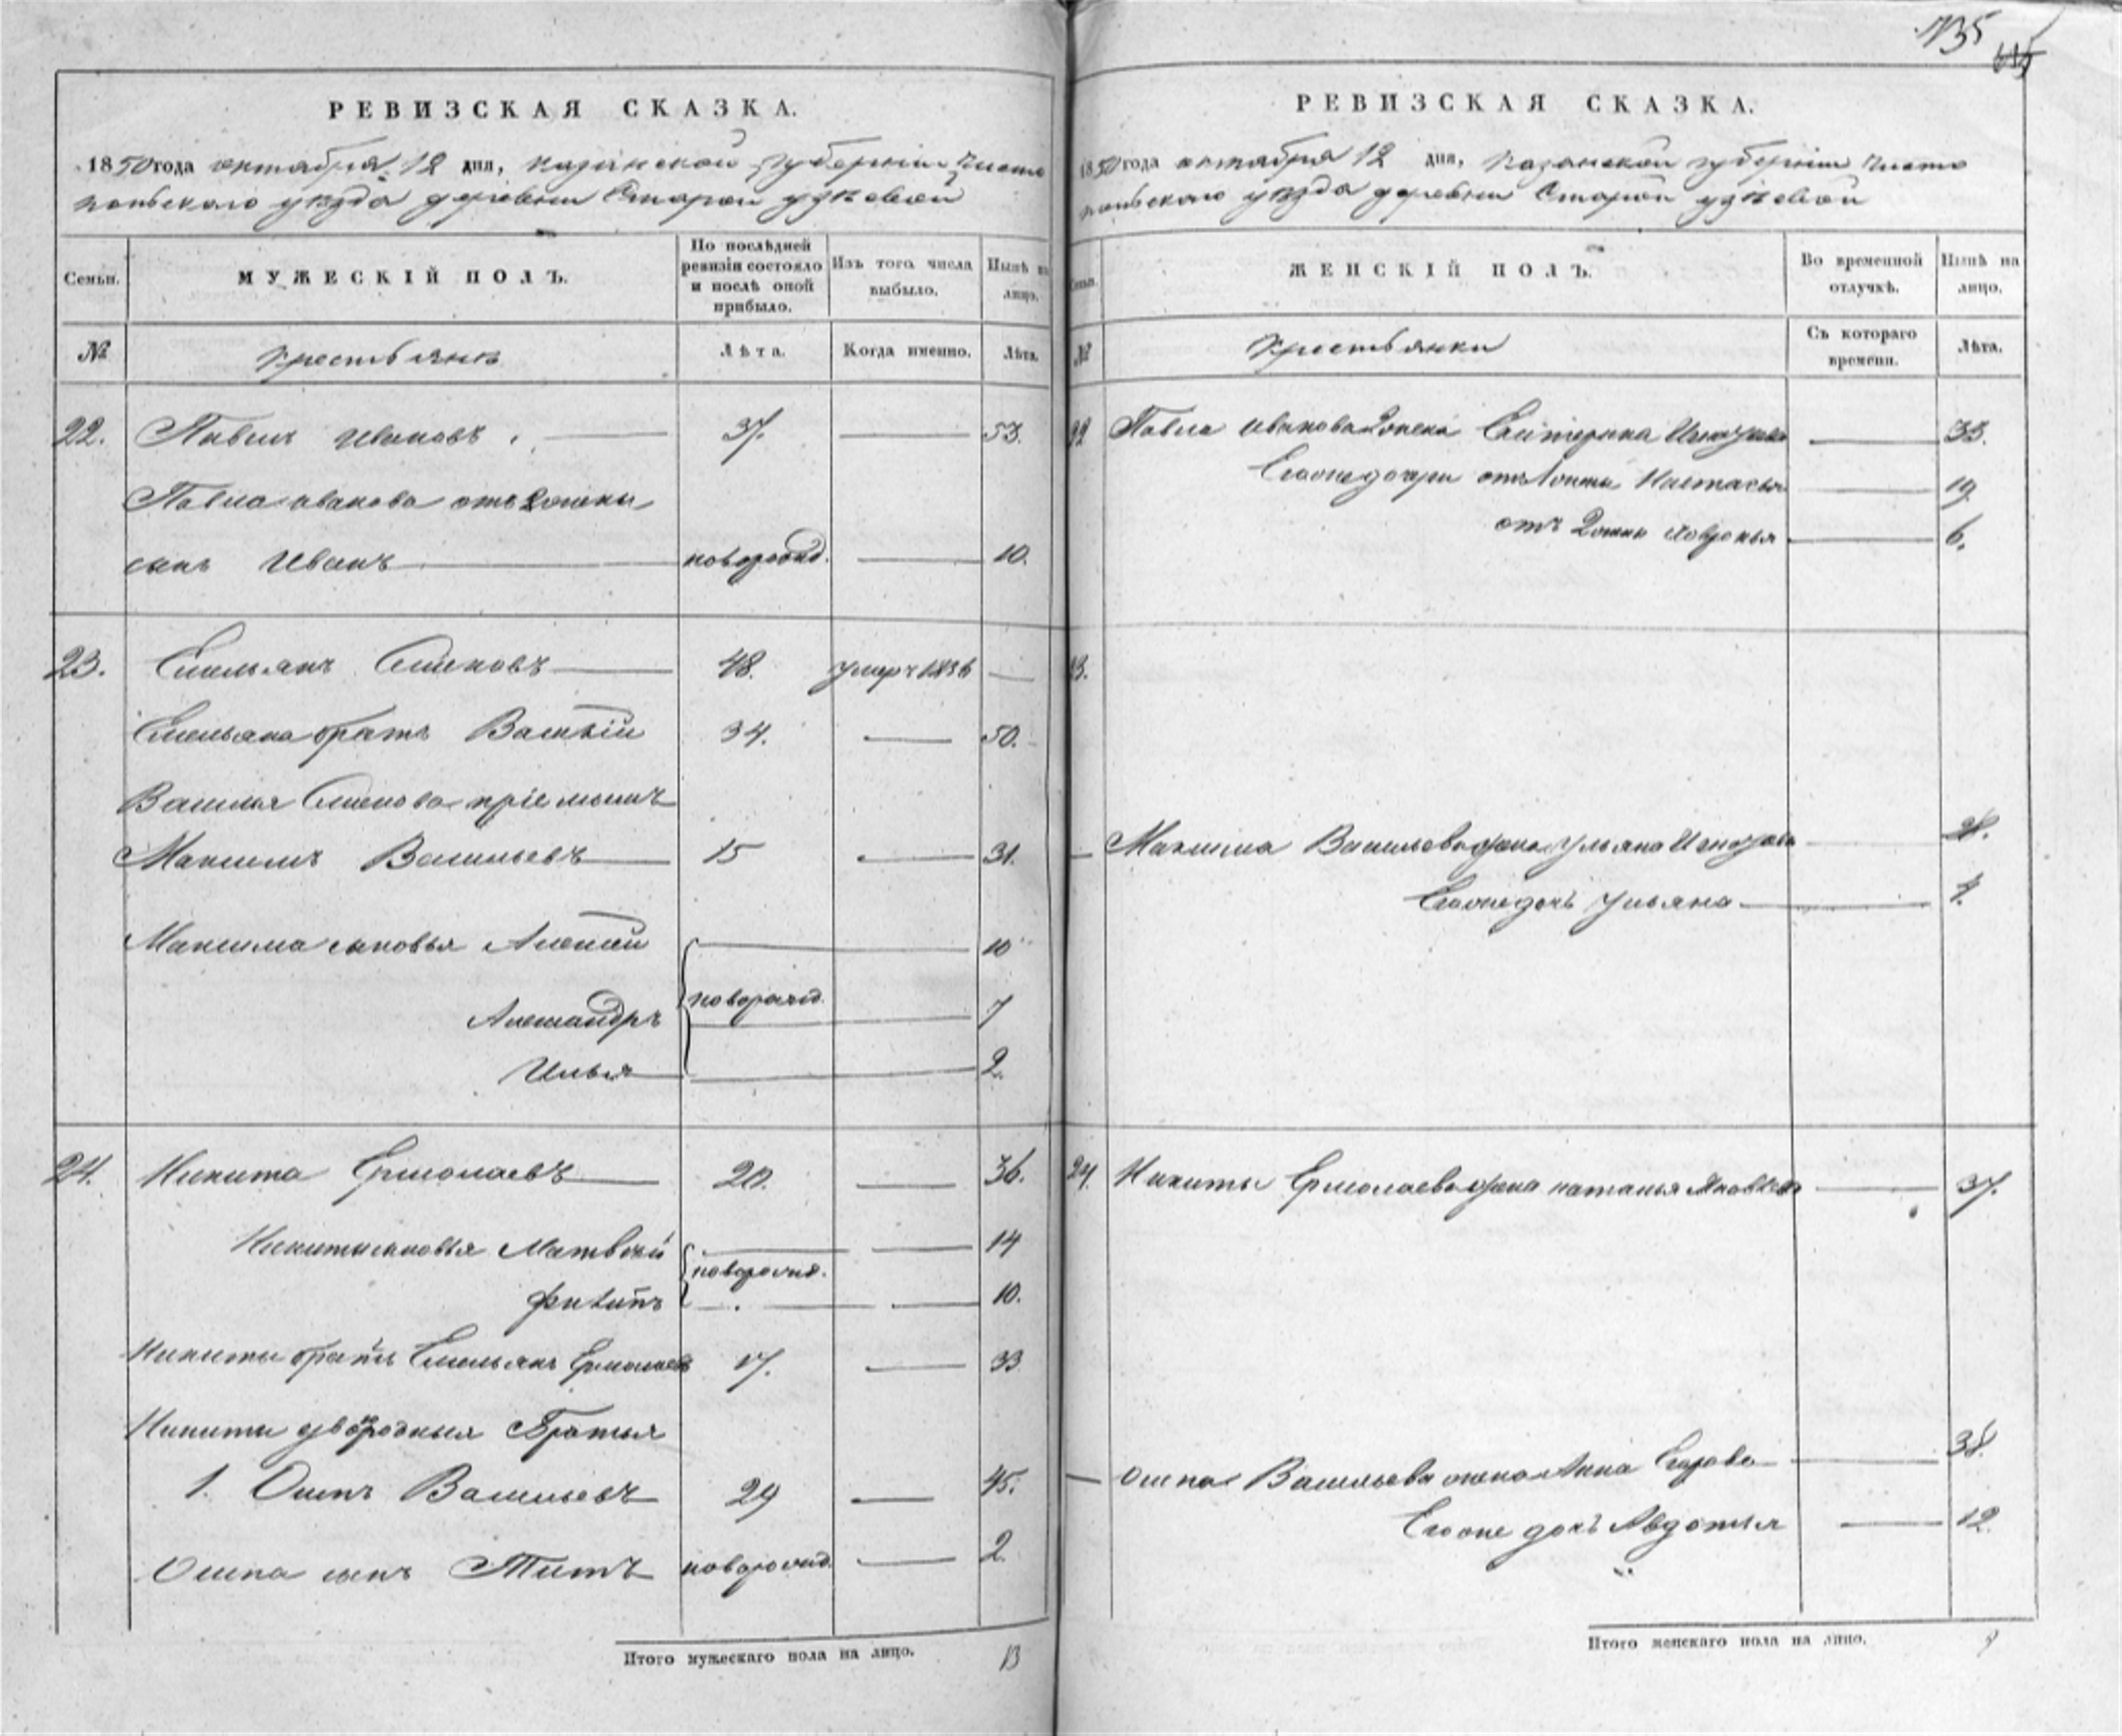 135
РЕВИЗСКАЯ СКАЗКА.
1850 года октября 12 дня, казанской губернiи чисто
польскаго уѣзда деревни Старой
Семьи.
МУЖЕСКIЙ ПОЛЪ.
По послѣдней ревизiи состояло и послѣ оной прибыло.
Изъ того числа выбыло.
Нынѣ на лицо.
№
крестьянъ
Лѣта.
Когда именно.
Лѣта.
22. Павелъ Ивановъ 37. 53.
Павла Иванова отъ 2 жены
сынъ Иванъ новорожд. 10.
23. Емельянъ Семеновъ 48. умеръ 1836
Емельяна братъ Василiй 34. 50.
Василья Семенова прiемышъ
Максимъ Васильевъ 15 31.
Максима сыновья Алексей 10
новорожд.
Александръ 7
Илья 2.
24. Никита Ермолаевъ 20. 36.
Никиты сыновья Матвей 14
новорожд.
Филипъ 10.
Никиты братъ Емельянъ Ермолаевъ 17. 33
Никиты двоюродныя Братья
1. Осипъ Васильевъ 29 45.
Осипа сынъ Титъ новорожд. 2.
Итого мужескаго пола на лицо. 13
РЕВИЗСКАЯ СКАЗКА.
1850 года октября 12 дня, Казанской губернiи чисто
польскаго уѣзда деревни Старой
Семьи.
ЖЕНСКIЙ ПОЛЪ.
Во временной отлучкѣ.
Нынѣ на лицо.
№
крестьянки
Съ котораго времени.
Лѣта.
22 Павла Иванова 2 жена Екатерина 33.
Егоже дочери отъ 1 жены Настасья 19
отъ 2 жены 6.
23.
Максима Васильева жена Ульяна 28.
Егоже дочь Ульяна 1.
24. Никиты Ермолаева жена наталья Яковлева 37.
Осипа Васильева жена Анна Егорова 38.
Егоже дочь Авдотья 12.
Итого женскаго пола на лицо.